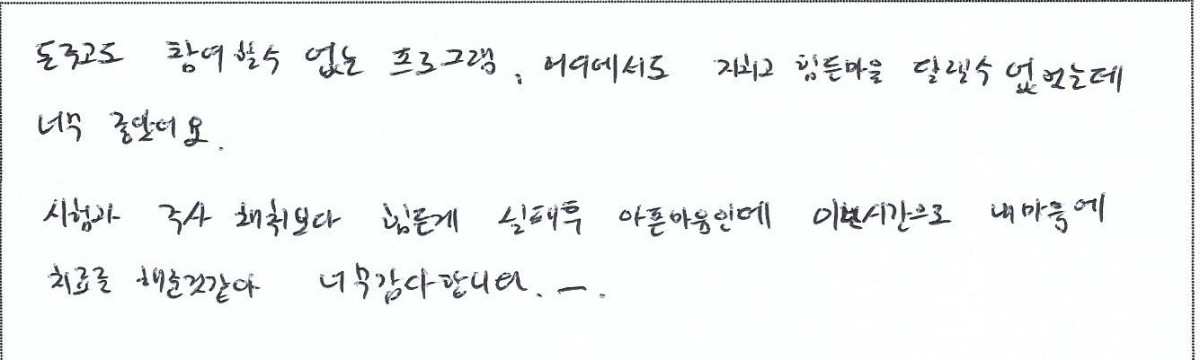 돈주고도 참여할수 없는 프로그램, 어디에서도 지치고 힘든마을 달랠수 없었는데
너무 좋았어요.
시험관 주사 채취보다 힘든게 실패후 아픈마음인데 이번시간으로 내마음에
치료를 해준것같아 너무감사합니다. ㅡ.